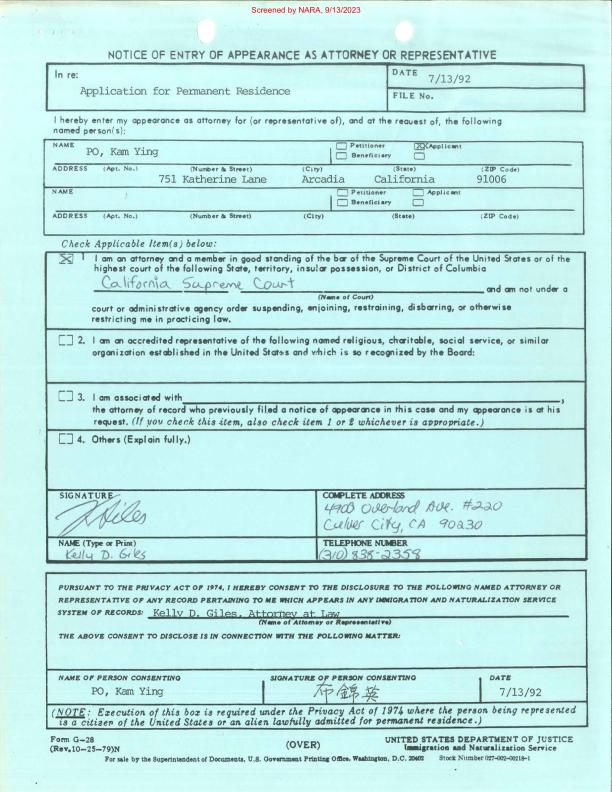 Screened by NARA, 9/13/2023
NOTICE OF ENTRY OF APPEARANCE AS ATTORNEY OR REPRESENTATIVE
In re:
Application for Permanent Residence
DATE 7/13/92
FILE No.
I hereby enter my appearance as attorney for (or representative of), and at the request of, the following
named person(s):
NAME PO, Kam Ying
Petitioner Applicant
Beneficiary
ADDRESS (Apt. No.) (Number & Street) (City) (State) (ZIP Code)
751 Katherine Lane Arcadia California 91006
NAME
Petitioner Applicant
Beneficiary
ADDRESS (Apt. No.) (Number & Street) (City) (State) (ZIP Code)
Check Applicable Item(s) below:
1 I am an attorney and a member in good standing of the bar of the Supreme Court of the United States or of the
highest court of the following State, territory, insular possession, or District of Columbia
California Supreme Court and am not under a
(Name of Court)
court or administrative agency order suspending, enjoining, restraining, disbarring, or otherwise
restricting me in practicing law.
2. I am an accredited representative of the following named religious, charitable, social service, or similar
organization established in the United States and which is so recognized by the Board:
3. I am associated with ,
the attorney of record who previously filed a notice of appearance in this case and my appearance is at his
request. (If you check this item, also check item 1 or 2 whichever is appropriate.)
4. Others (Explain fully.)
SIGNATURE
COMPLETE ADDRESS
4900 Overland Ave. #220
Culver City, CA 90230
NAME (Type or Print)
Kelly D. Giles
TELEPHONE NUMBER
(310) 838-2358
PURSUANT TO THE PRIVACY ACT OF 1974, I HEREBY CONSENT TO THE DISCLOSURE TO THE FOLLOWING NAMED ATTORNEY OR
REPRESENTATIVE OF ANY RECORD PERTAINING TO ME WHICH APPEARS IN ANY IMMIGRATION AND NATURALIZATION SERVICE
SYSTEM OF RECORDS: Kelly D. Giles, Attorney at Law
(Name of Attorney or Representative)
THE ABOVE CONSENT TO DISCLOSE IS IN CONNECTION WITH THE FOLLOWING MATTER:
NAME OF PERSON CONSENTING
PO, Kam Ying
SIGNATURE OF PERSON CONSENTING
布錦英
DATE
7/13/92
(NOTE: Execution of this box is required under the Privacy Act of 1974 where the person being represented
is a citizen of the United States or an alien lawfully admitted for permanent residence.)
Form G-28
(Rev.10-25-79)N
(OVER)
UNITED STATES DEPARTMENT OF JUSTICE
Immigration and Naturalization Service
For sale by the Superintendent of Documents, U.S. Government Printing Office, Washington, D.C. 20402 Stock Number 027-002-00218-1